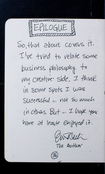 EPILOGUE
So, that about covers it.
I've tried to relate some
business philosophy to
my creative side. I think
in some spots I was
successful... not so much
in others. But – I hope you
have at least enjoyed it.
The Author